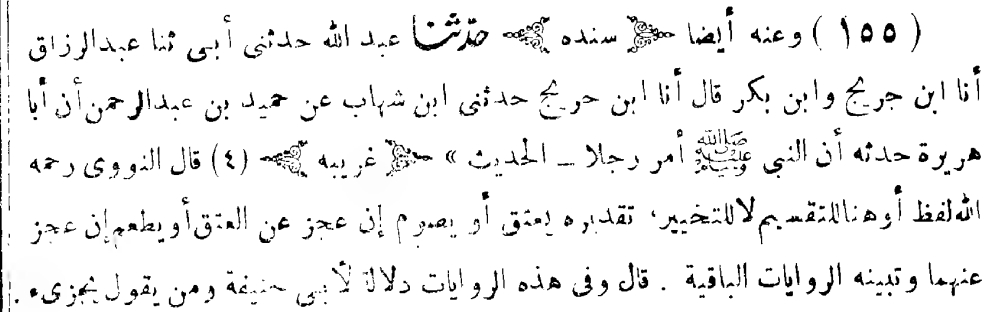 ( ١٥٥ ) وعنه أيضا ﴿ سنده ﴾ حدّثنا عبد الله حدثنى أبى ثنا عبدالرزاق
أنا ابن جريج وابن بكر قال أنا ابن جريج حدثنى ابن شهاب عن حميد بن عبدالرحمن أن أبا
هريرة حدثه أن النبى ﷺ أمر رجلا ــ الحديث » ﴿ غريبه ﴾ (٤) قال النووى رحمه
الله لفظ أو هنا للتقسيم لا للتخيير، تقديره يعتق أو يصوم إن عجز عن العتق أو يطعم إن عجز
عنهما وتبينه الروايات الباقية . قال وفى هذه الروايات دلالة لأبى حنيفة ومن يقول يجزىء .